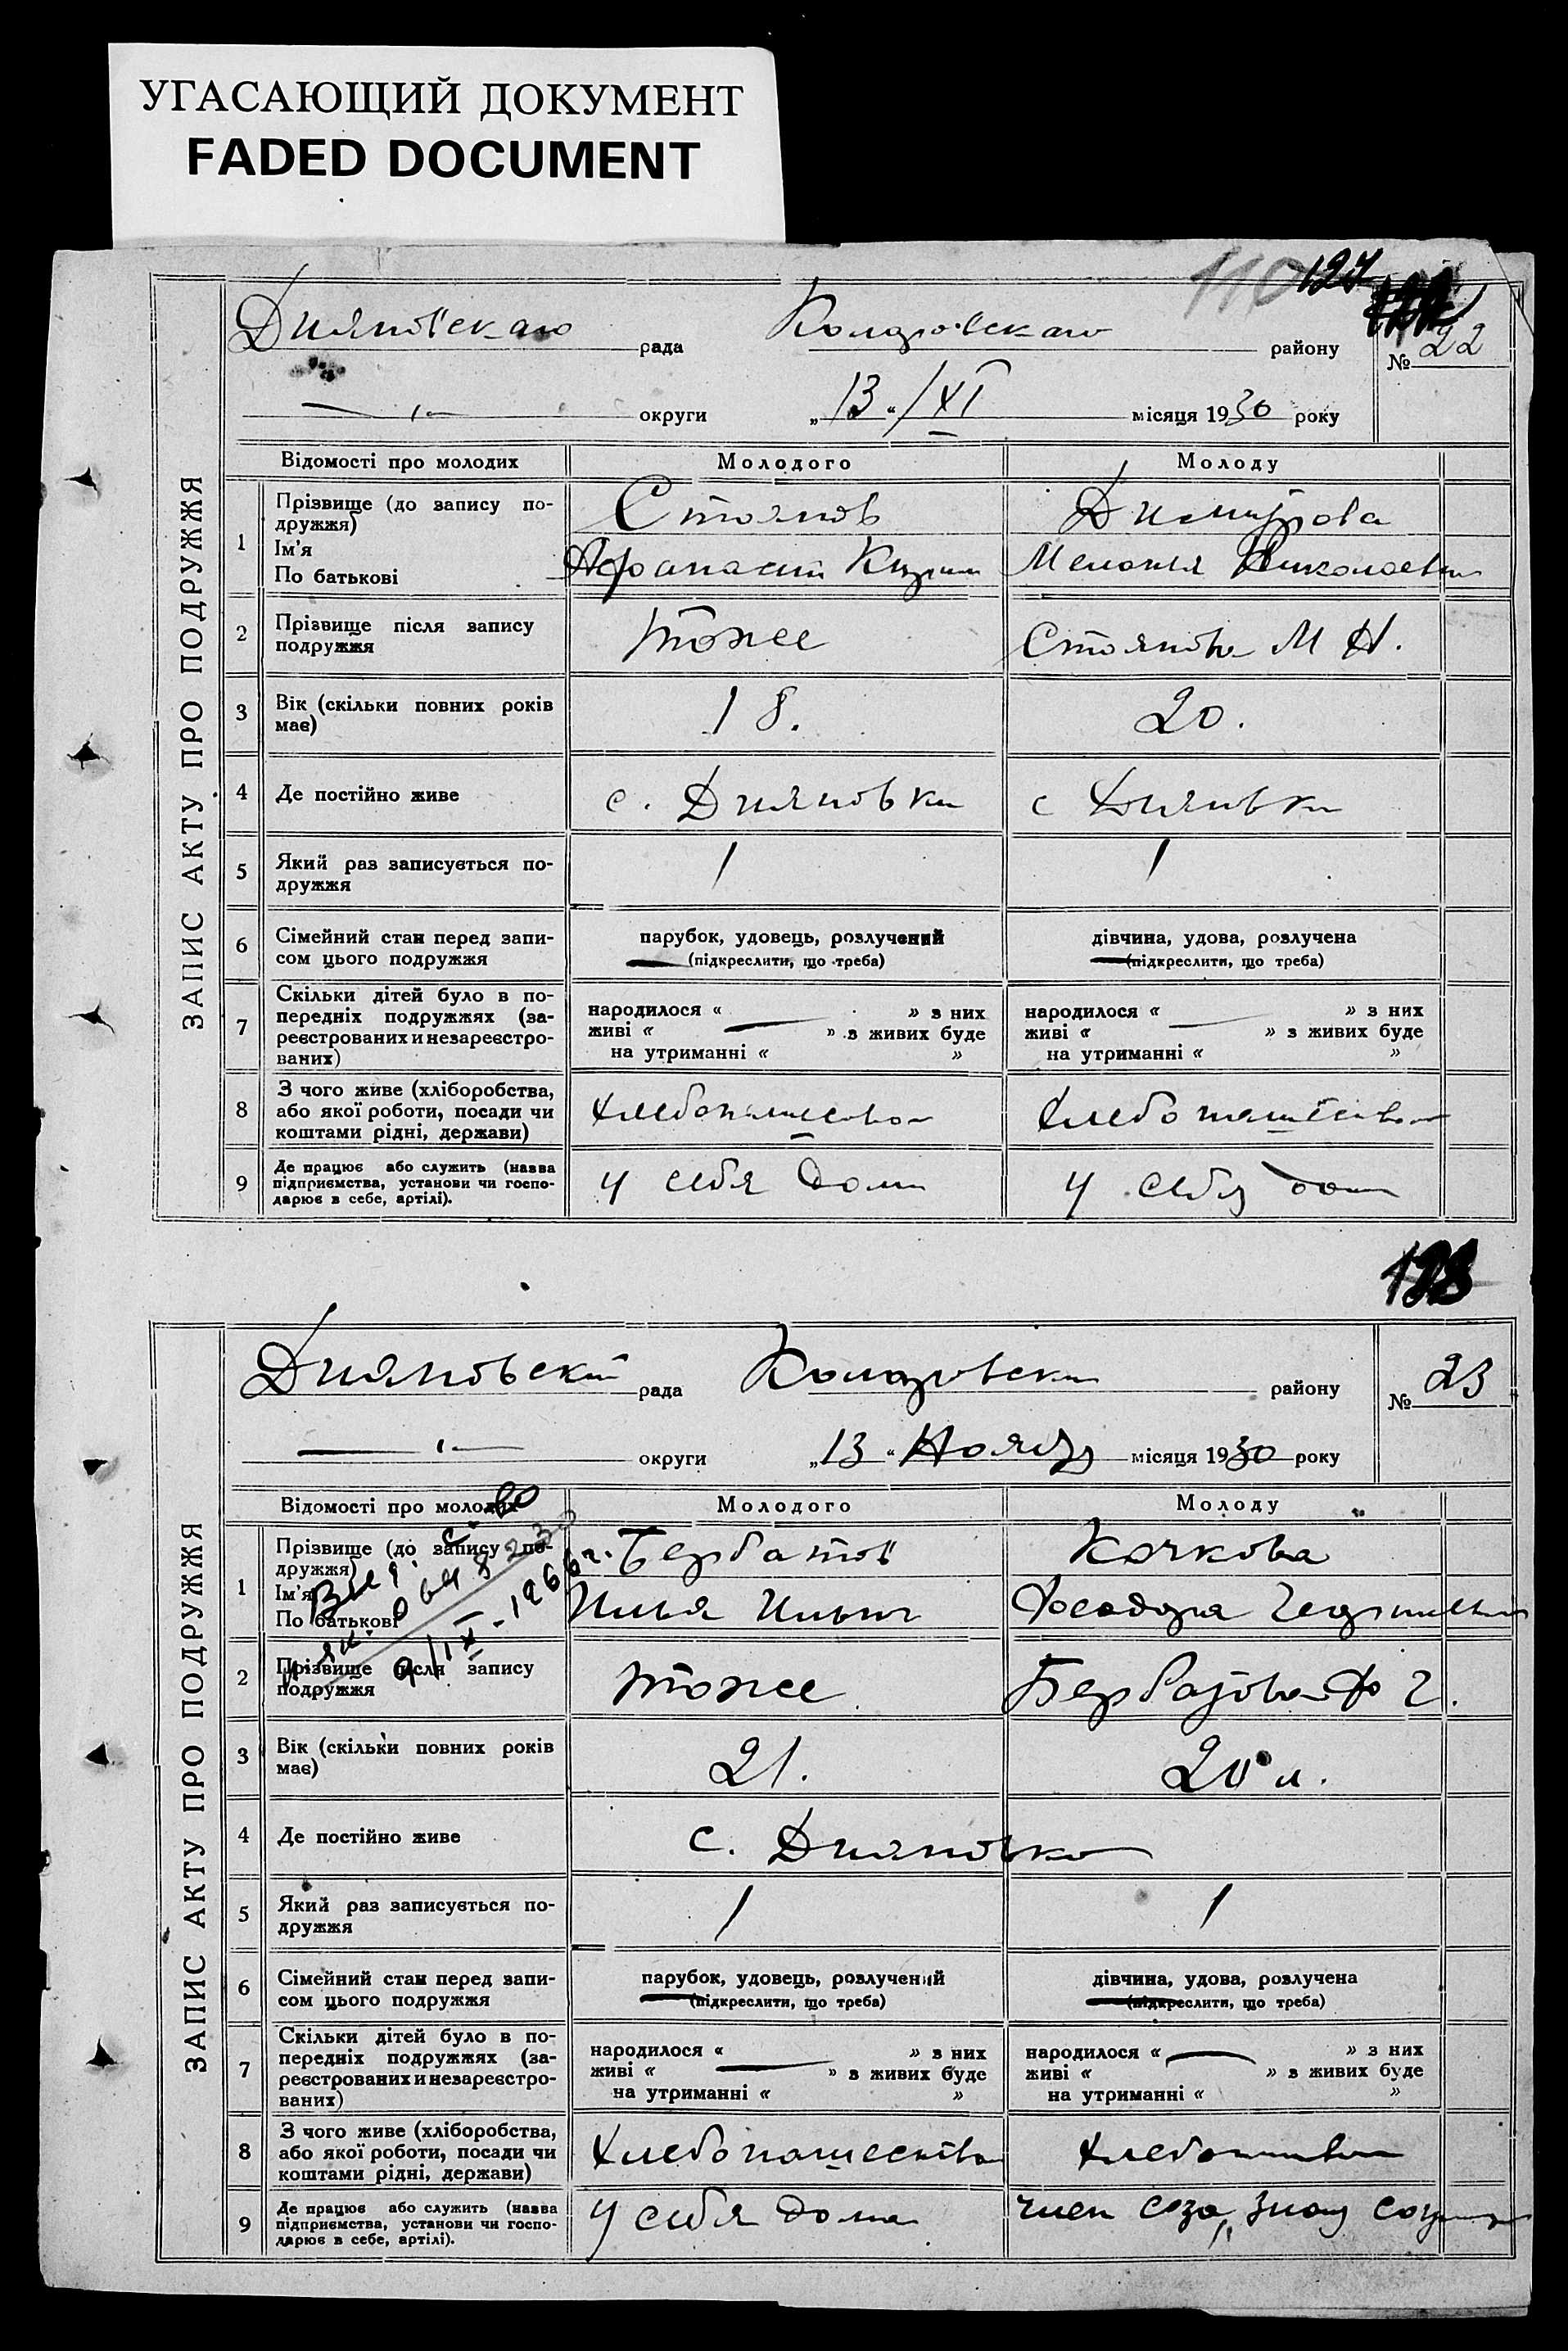 УГАСАЮЩИЙ ДОКУМЕНТ
FADED DOCUMENT
110 127
Дияновскаго рада Коларовскаго району № 22
округи „13“/XI місяця 1930 року
ЗАПИС АКТУ ПРО ПОДРУЖЖЯ
Відомості про молодих Молодого Молоду
1 Прізвище (до запису по-
дружжя) Стоянов Димитрова
Ім'я
По батькові Афанасий Мелания Николаевна
2 Прізвище після запису
подружжя тоже Стоянова М Н.
3 Вік (скільки повних років
має) 18. 20.
4 Де постійно живе с. Дияновки с Дияновки
5 Який раз записується по-
дружжя 1 1
6 Сімейний стан перед запи-
сом цього подружжя
парубок, удовець, розлучений дівчина, удова, розлучена
(підкреслити, що треба) (підкреслити, що треба)
7 Скільки дітей було в по-
передніх подружжях (за-
реєстрованих и незареєстро-
ваних)
народилося « » з них народилося « » з них
живі « » з живих буде живі « » з живих буде
на утриманні « » на утриманні « »
8 З чого живе (хліборобства,
або якої роботи, посади чи
коштами рідні, держави) хлебопашество хлебопашество
9 Де працює або служить (назва
підприємства, установи чи госпо-
дарює в себе, артілі). у себя дома у себя дома
128
Дияновский рада Коларовски району № 23
округи „13“ Ноября місяця 1930 року
ЗАПИС АКТУ ПРО ПОДРУЖЖЯ
Відомості про молодих Молодого Молоду
1 Прізвище (до запису по-
дружжя) Бербатов Кочкова
Ім'я
По батькові Илья Ильич Феодора Георгиевна
9/IX-1966г.
2 Прізвище після запису
подружжя тоже Бербатова Ф Г.
3 Вік (скільки повних років
має) 21. 20 л.
4 Де постійно живе с. Дияновка
5 Який раз записується по-
дружжя 1 1
6 Сімейний стан перед запи-
сом цього подружжя
парубок, удовець, розлучений дівчина, удова, розлучена
(підкреслити, що треба) (підкреслити, що треба)
7 Скільки дітей було в по-
передніх подружжях (за-
реєстрованих и незареєстро-
ваних)
народилося « » з них народилося « » з них
живі « » з живих буде живі « » з живих буде
на утриманні « » на утриманні « »
8 З чого живе (хліборобства,
або якої роботи, посади чи
коштами рідні, держави) хлебопашества хлебопашество
9 Де працює або служить (назва
підприємства, установи чи госпо-
дарює в себе, артілі). у себя дома член соза